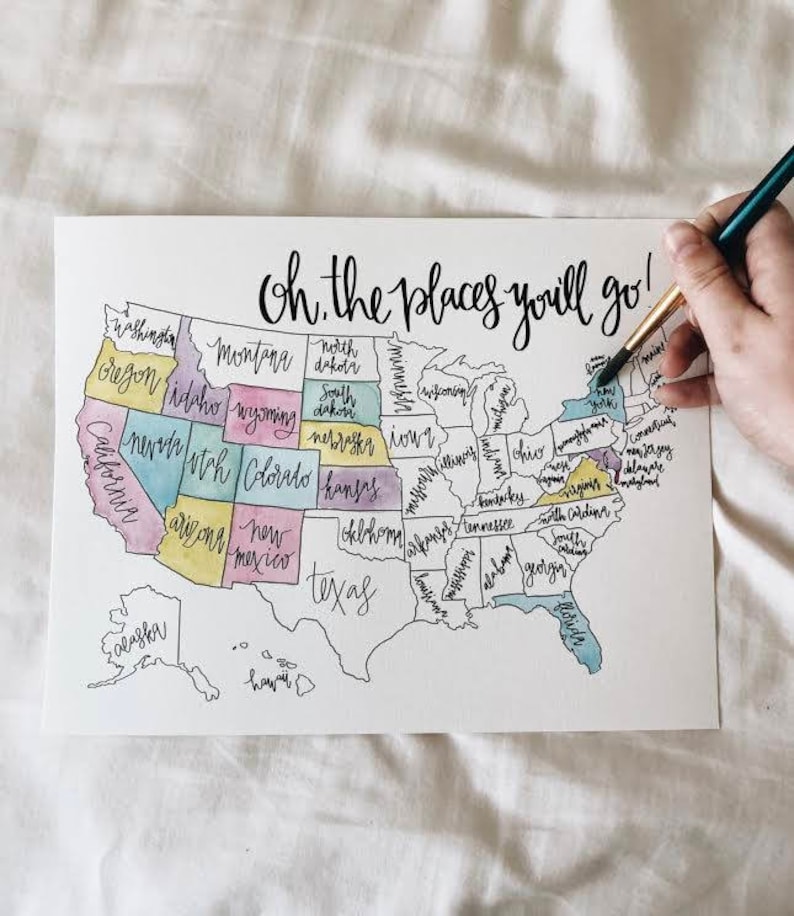 Oh, the places you'll go!
Washington
Oregon
California
Idaho
Nevada
Montana
Wyoming
Utah
Colorado
Arizona
New
Mexico
North
Dakota
South
Dakota
Nebraska
Kansas
Oklahoma
Texas
Minnesota
Iowa
Missouri
Arkansas
Louisiana
Wisconsin
Illinois
Michigan
Indiana
Ohio
Kentucky
Tennessee
Mississippi
Alabama
Georgia
Florida
South
Carolina
North Carolina
Virginia
West
Virginia
Pennsylvania
New
York
Maine
Connecticut
New Jersey
Delaware
Maryland
Alaska
Hawaii